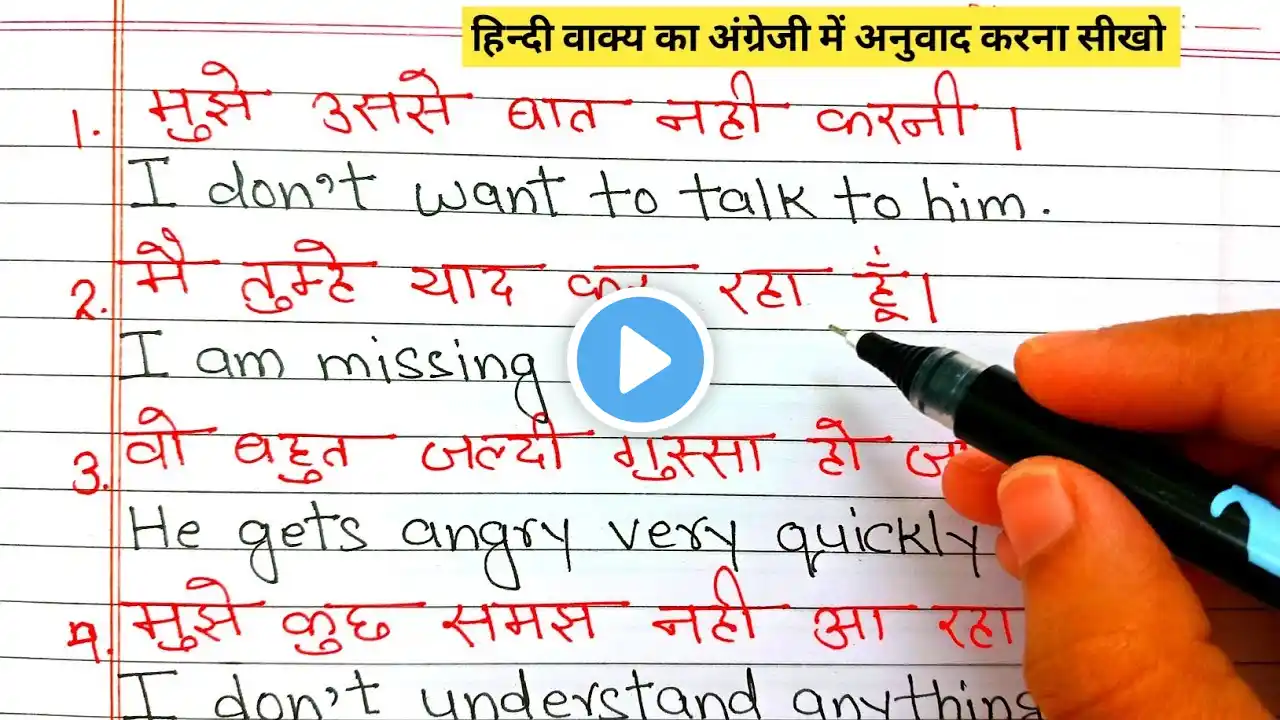 हिन्दी वाक्य का अंग्रेजी में अनुवाद करना सीखो
1. मुझे उससे बात नही करनी।
I don't want to talk to him.
2. मै तुम्हे याद कर रहा हूँ।
I am missing
3. वो बहुत जल्दी गुस्सा हो
He gets angry very quickly
4. मुझे कुछ समझ नही आ रहा
I don't understand anything